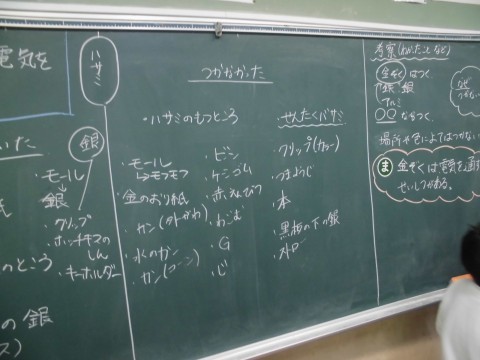 電気を
ハサミ
いた
銀
・モール
銀
・クリップ
・ホッチキスの
しん
・キーホルダー
のところ
の銀
つかなかった
・ハサミのもつところ
・モール
→モフモフ
・金のおり紙
・カン(外がわ)
・水のカン
・カン(コーン)
・ビン
・ケシゴム
・赤えんぴつ
・わごむ
・G
・じ
・せんたくバサミ
・クリップ(カラー)
・つまようじ
・本
・黒板の下の銀
・ストロー
考察(わかったことなど)
金ぞくはつく
鉄 銀
アルミ
○○ならつく。
場所や色によてはつかない
ま 金ぞくは電気を通す
せいしつがある。
なぜ